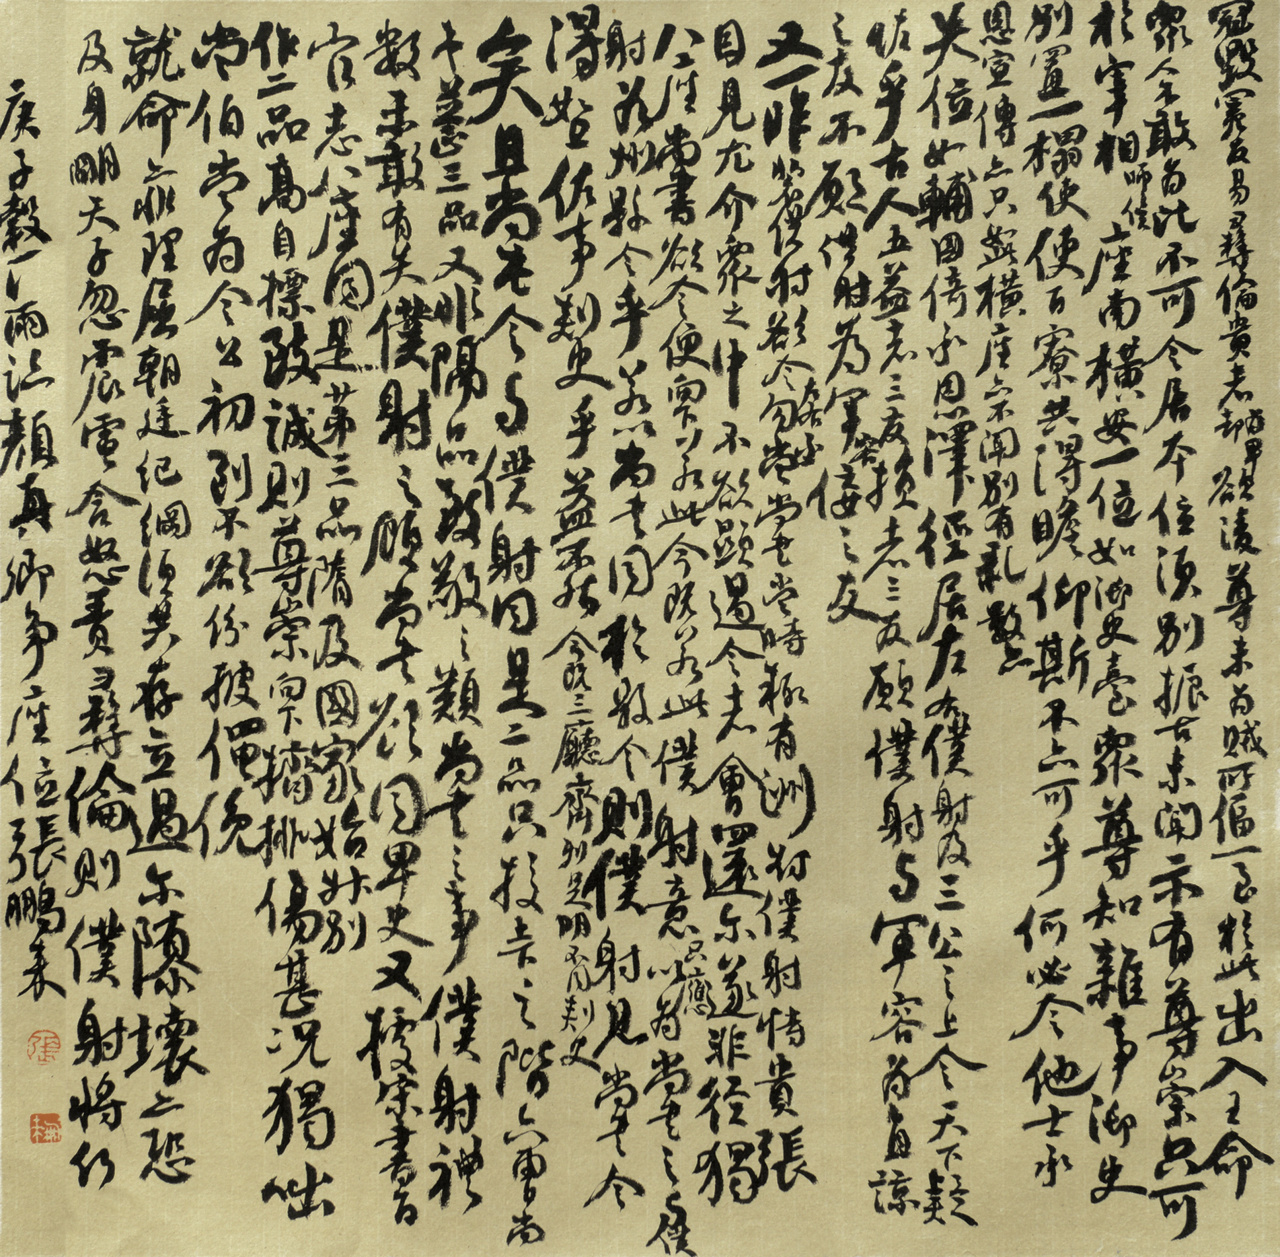 冠毀冕反易彝倫貴者為卑欲凌尊未為賊所偪一至於此出入王命
衆人不敢為比不可令居本位須別振古未聞示有尊崇只可
於宰相師保座南橫安一位如御史臺衆尊知雜事御史
別置一榻使使百寮共得瞻仰斯不亦可乎何必令他士承
恩宣傳亦只如橫座亦不聞別有禮數亦
失位如輔國倚承恩澤徑居左右僕射及三公之上令天下疑
怪乎古人云益者三友損者三友願僕射與軍容為直諒
之友不願僕射為軍容佞之友
又一昨裴僕射欲令左右丞勾當尚書當時輒有酬對僕射恃貴張
目見尤介衆之中不欲顯過今者會還爾遂非徑猲
八座尚書欲令便向下若此今既若此僕射意只應以為尚書之與僕
射若州縣令乎若以尚書同於縣令則僕射見尚書令
得如上佐事刺史乎益不然今既三廳齊列足明不同刺史
矣且尚書令與僕射同是二品只校上下之階六曹尚
書並正三品又非隔品致敬之類尚書之事僕射禮
數未敢有失僕射之顧尚書欲同卑吏又據宋書百
官志八座同是第三品隋及國家始升別
作二品高自標致誠則尊崇向下擠排傷甚況猲咄
常伯當為令公初到不欲紛披僶俛
就命亦非理屈朝廷紀綱須共存立過爾隳壞亦恐
及身明天子忽震電含怒責彝倫則僕射將何
庚子穀雨臨顏真卿爭座位張鵬来